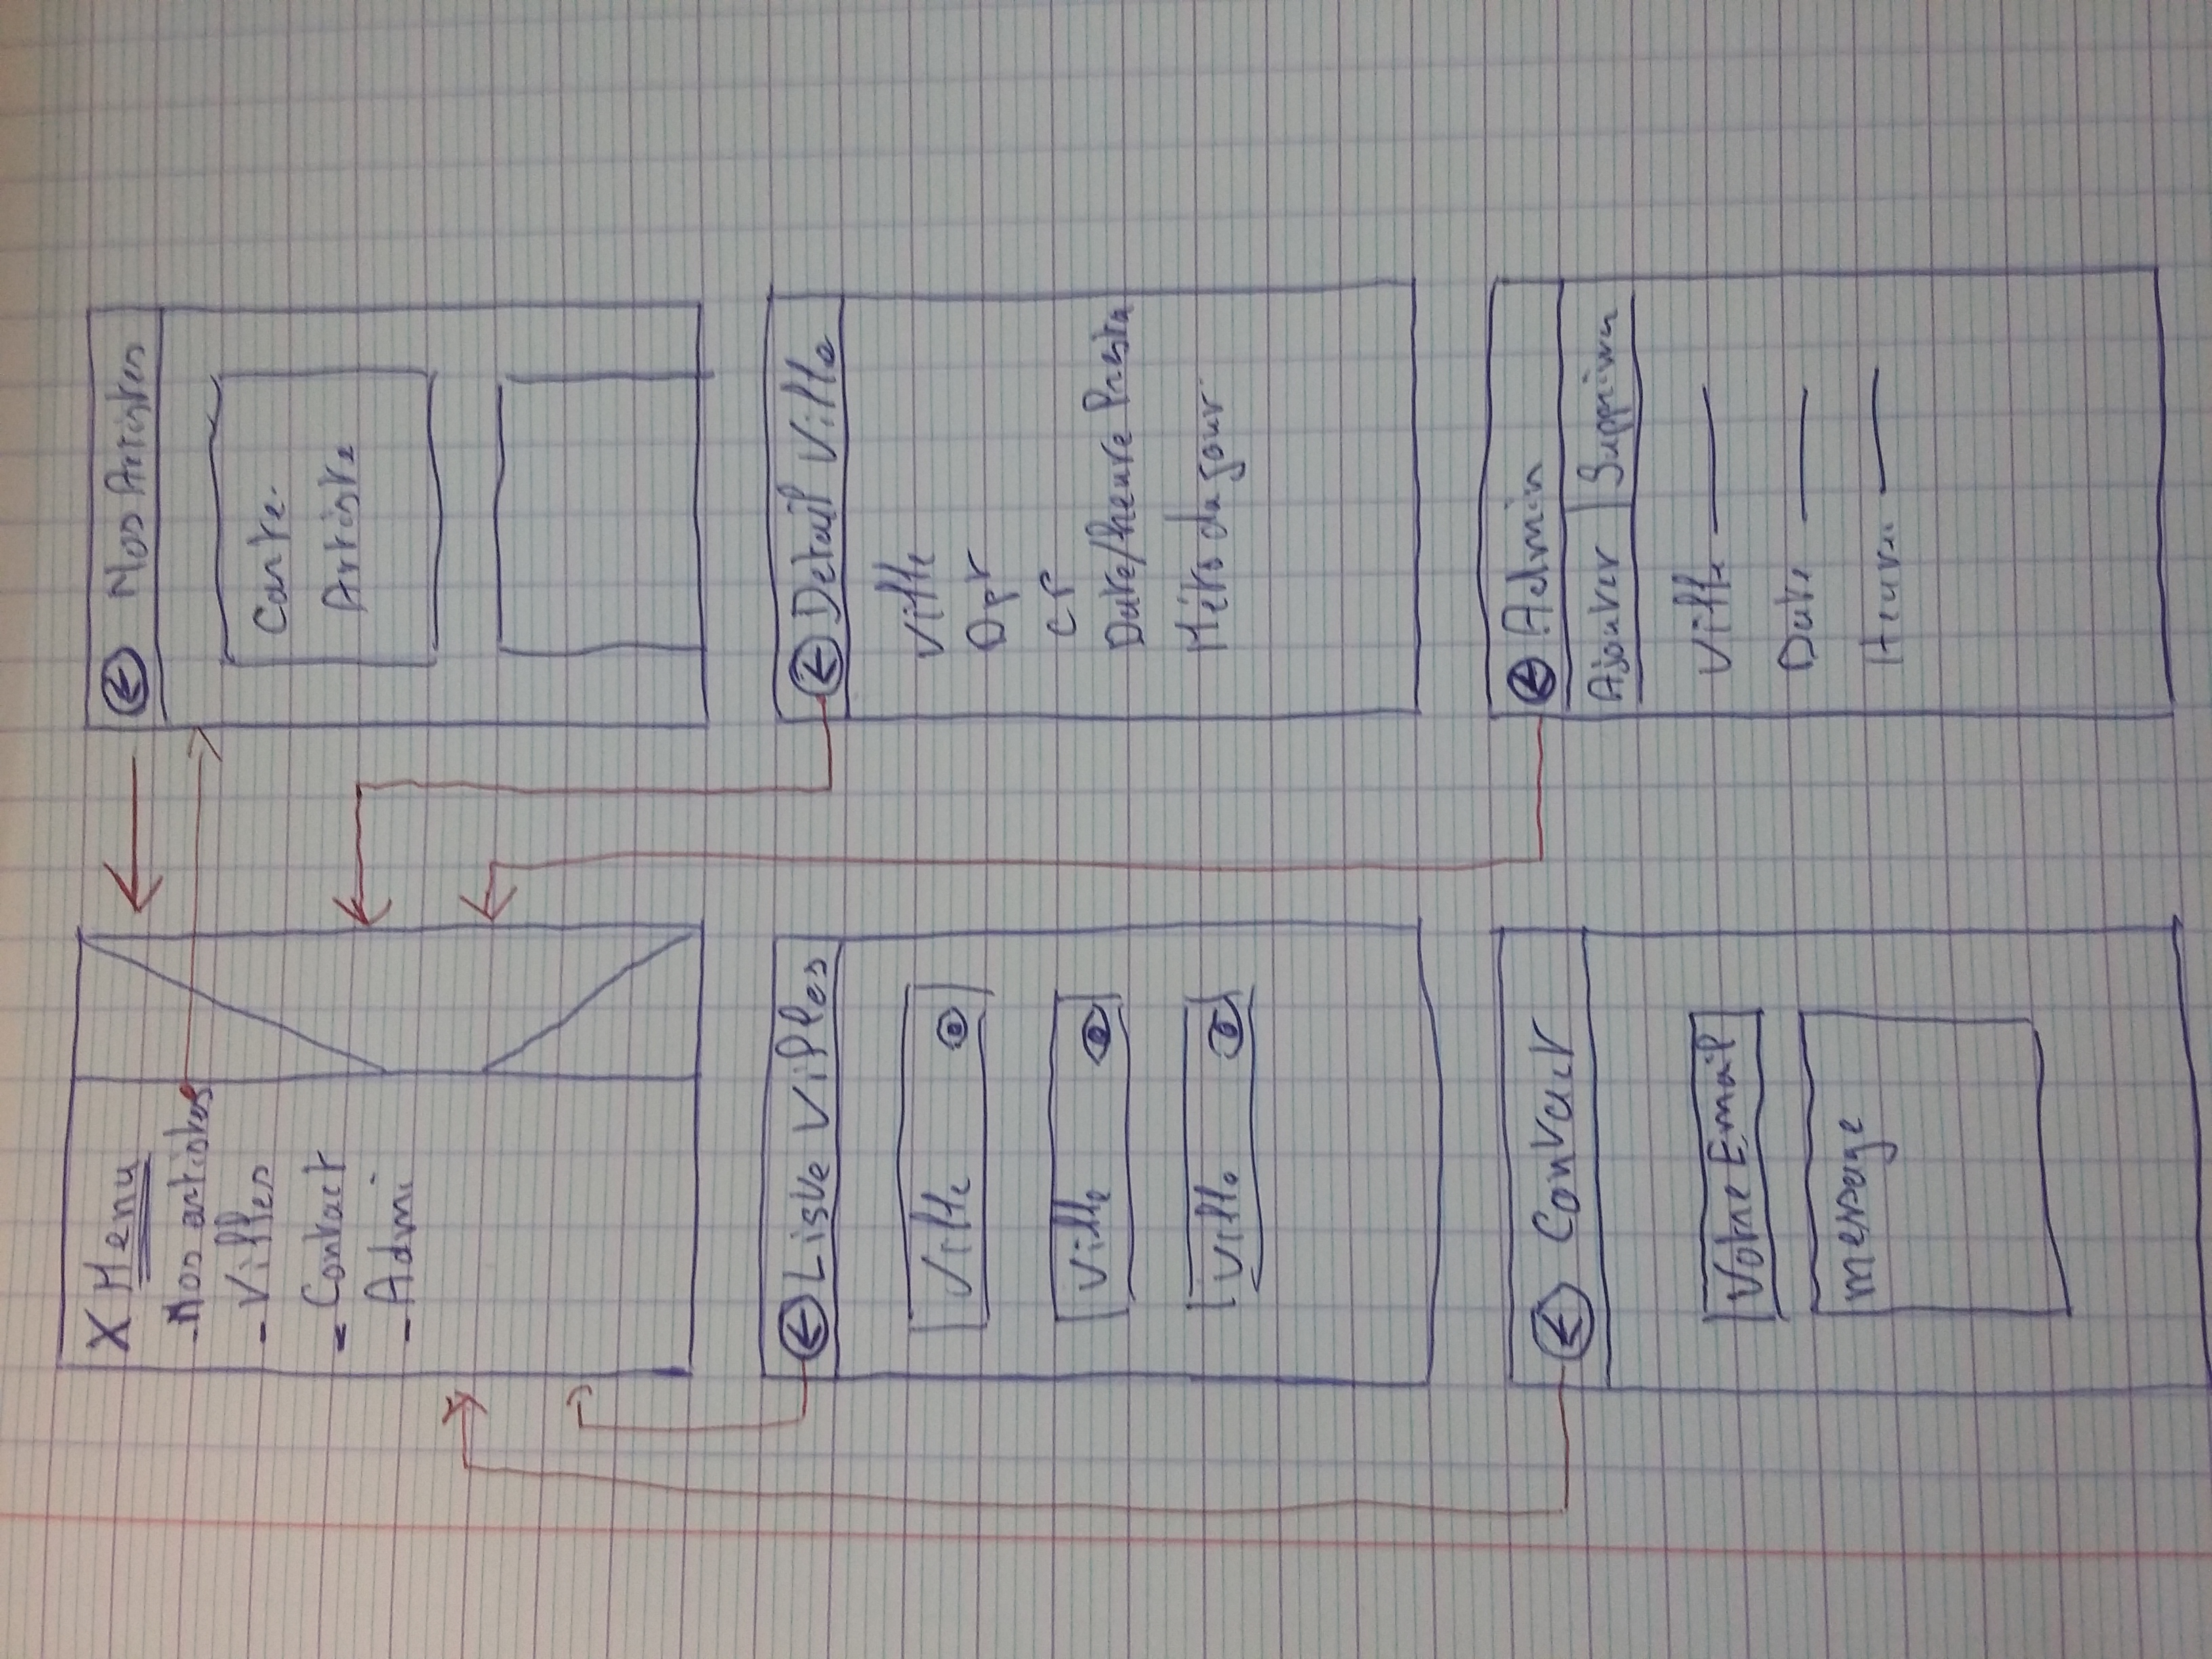 X Menu
- Nos artistes
- Villes
- Contact
- Admi
Nos Artistes
Carte
Artiste
Liste Villes
Ville
Ville
Ville
Detail Ville
Ville
Dpt
CP
Date/heure Presta
Météo du jour
Contact
Votre Email
message
Admin
Ajouter | Supprimer
Ville
Date
Heure